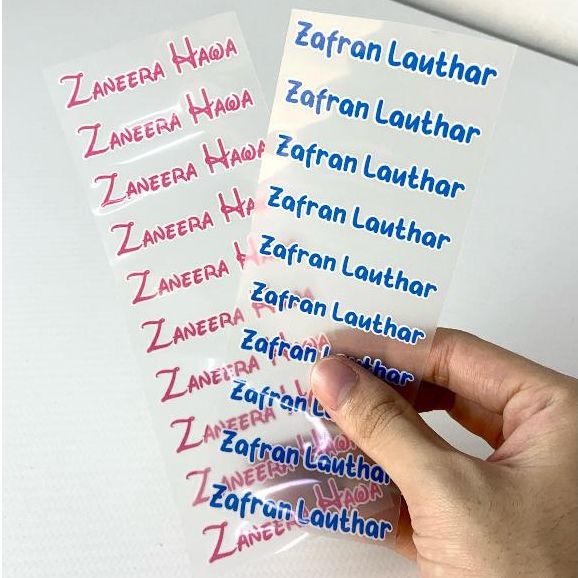 Zaneera Hawa
Zaneera Hawa
Zaneera Hawa
Zaneera Ha
Zaneera
Zaneera
Zaneera
Zaneera
Zaneera Hawa
Zaneera Hawa
Zafran Lauthar
Zafran Lauthar
Zafran Lauthar
Zafran Lauthar
Zafran Lauthar
Zafran Lauthar
Zafran Lauthar
Zafran
Zafran Lauthar
Zafran Lauthar